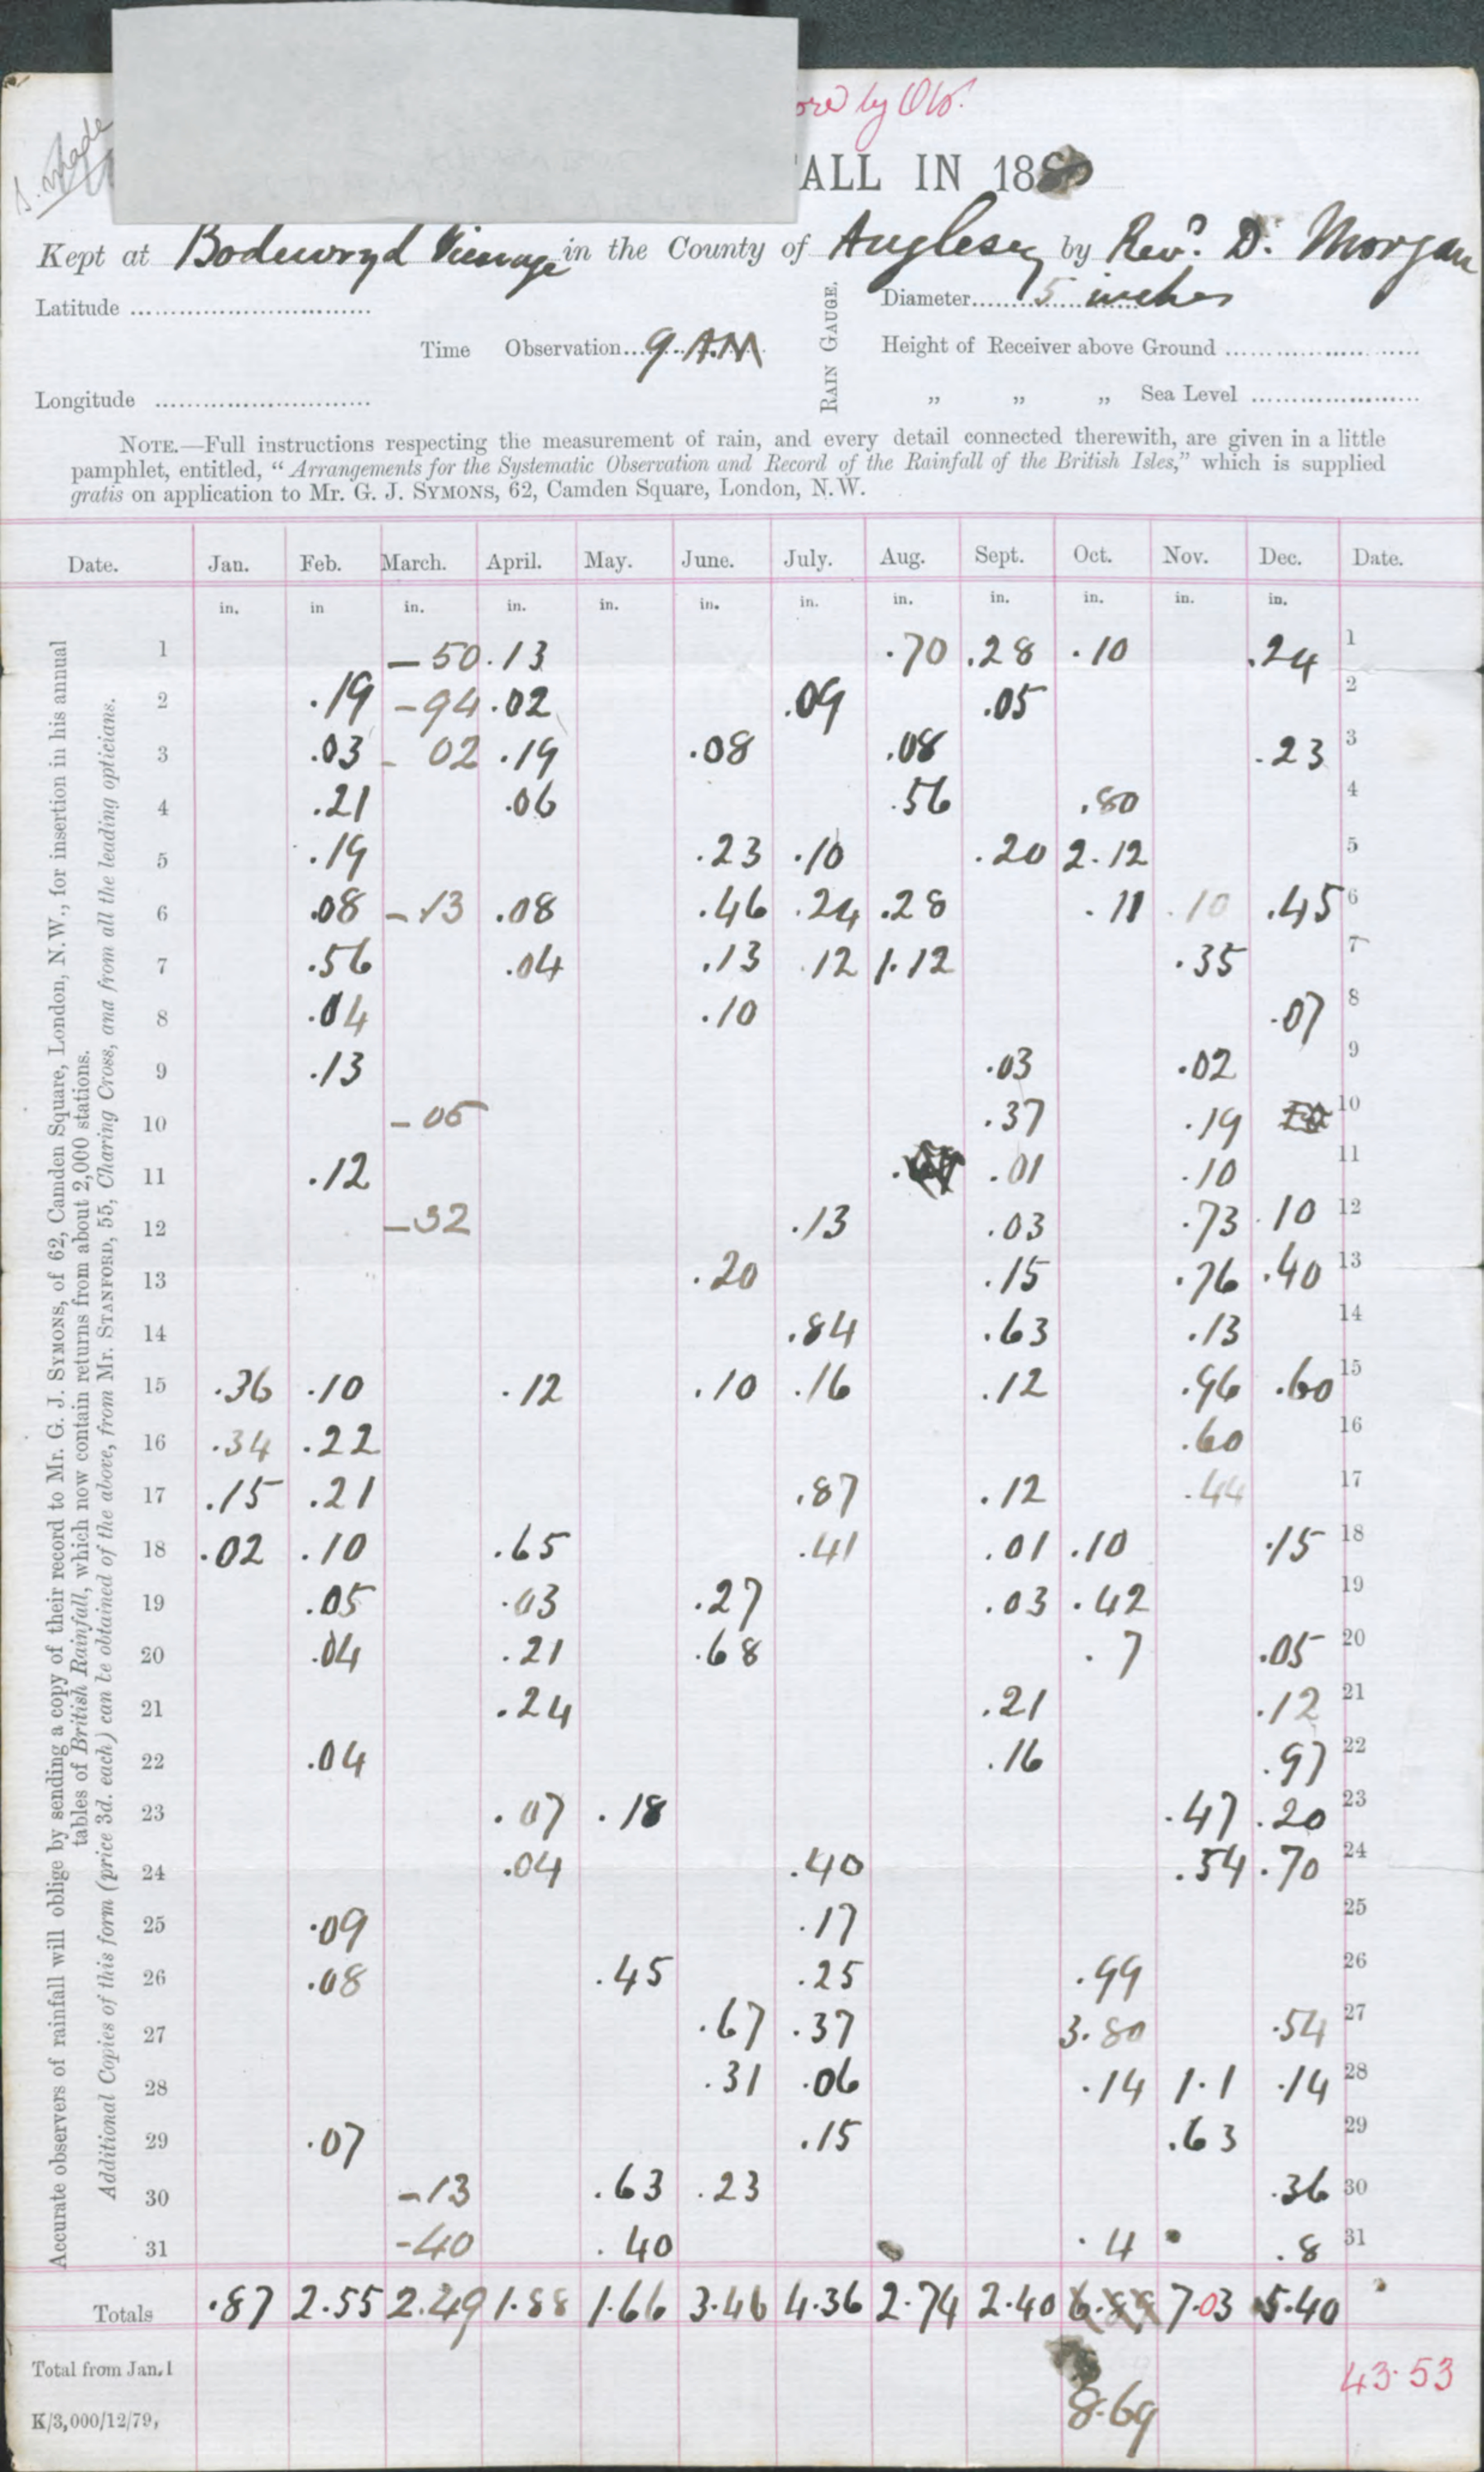 by Obr.
ALL IN 188
Kept at Bodewryd Vicarage in the County of Anglesey by Revd. D. Morgan
Latitude
Time Observation 9 A.M
RAIN GAUGE.
Diameter 5 inches
Height of Receiver above Ground
Longitude
„ „ „ Sea Level
NOTE.—Full instructions respecting the measurement of rain, and every detail connected therewith, are given in a little
pamphlet, entitled, “Arrangements for the Systematic Observation and Record of the Rainfall of the British Isles,” which is supplied
gratis on application to Mr. G. J. SYMONS, 62, Camden Square, London, N.W.
Accurate observers of rainfall will oblige by sending a copy of their record to Mr. G. J. SYMONS, of 62, Camden Square, London, N.W., for insertion in his annual
tables of British Rainfall, which now contain returns from about 2,000 stations.
Additional Copies of this form (price 3d. each) can be obtained of the above, from Mr. STANFORD, 55, Charing Cross, and from all the leading opticians.
Date. Jan. Feb. March. April. May. June. July. Aug. Sept. Oct. Nov. Dec. Date.
in. in in. in. in. in. in. in. in. in. in. in.
1 –50 .13 .70 .28 .10 .24 1
2 .19 –94 .02 .09 .05 2
3 .03 – 02 .19 .08 .08 .23 3
4 .21 .06 .56 .80 4
5 .19 .23 .10 .20 2.12 5
6 .08 –13 .08 .46 .24 .28 .11 .10 .45 6
7 .56 .04 .13 .12 1.12 .35 7
8 .04 .10 .07 8
9 .13 .03 .02 9
10 –05 .37 .19 10
11 .12 .01 .10 11
12 –32 .13 .03 .73 .10 12
13 .20 .15 .76 .40 13
14 .84 .63 .13 14
15 .36 .10 .12 .10 .16 .12 .96 .60 15
16 .34 .22 .60 16
17 .15 .21 .87 .12 .44 17
18 .02 .10 .65 .41 .01 .10 .15 18
19 .05 .03 .27 .03 .42 19
20 .04 .21 .68 .7 .05 20
21 .24 .21 .12 21
22 .04 .16 .97 22
23 .07 .18 .47 .20 23
24 .04 .40 .54 .70 24
25 .09 .17 25
26 .08 .45 .25 .99 26
27 .67 .37 3.80 .54 27
28 .31 .06 .14 1.1 .14 28
29 .07 .15 .63 29
30 –13 .63 .23 .36 30
31 –40 .40 .4 .8 31
Totals .87 2.55 2.49 1.88 1.66 3.46 4.36 2.74 2.40 6.89 7.03 5.40
Total from Jan. 1 43.53
8.69
K/3,000/12/79,